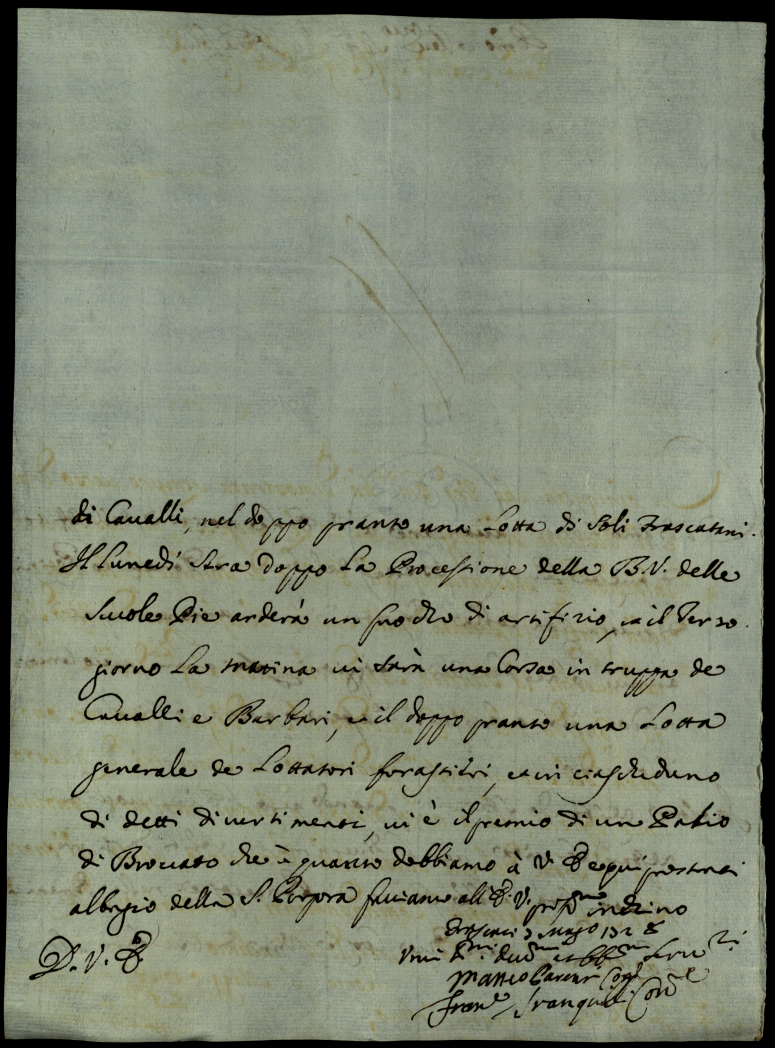 di Cavalli, nel doppo pranso una Lotta di Soli Frascatani.
Il lunedí Sera doppo La Processione della B.V. delle
Scuole Pie arderà un fuocho di artifizio, et il Terzo
giorno La matina vi sarà una Corsa in truppa de
Cavalli e Barbari, et il doppo pranso una Lotta
generale de Lottatori forastieri, et in ciascheduno
di detti divertimenti, vi è il premio di un Palio
di Broccato che è quanto dobbiamo à V. E qui prostrati
al bagio della S. Porpora facciamo all' E.V. profmo inchino
D. V. E
Frascati 3 Maggio
Vmi Dmi et obbmi Servri
Matteo
Franco